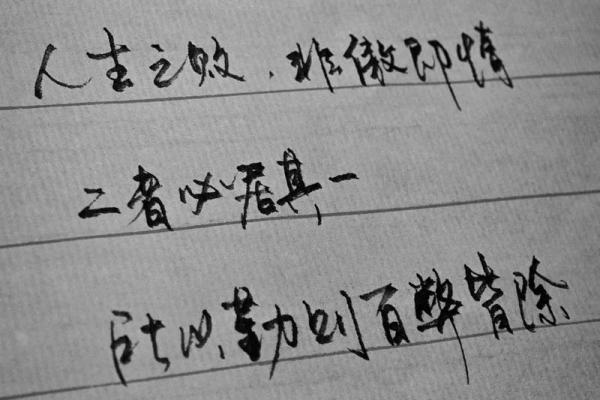 人生之败，非傲即惰
二者必居其一
所以勤则百弊皆除